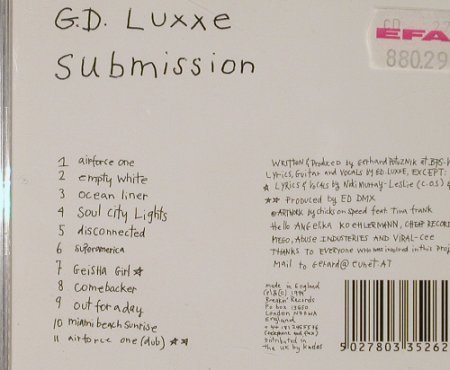 G.D. Luxxe
Submission
EFA
880.29
1 airforce one
2 empty white
3 ocean liner
4 Soul City Lights
5 disconnected
6 superamerica
7 Geisha Girl ☆
8 comebacker
9 out for a day
10 miami beach sunrise
11 airforce one (dub) ☆☆
WRITTEN & Produced by Gerhard Potuznik at
LYRICS, Guitar and VOCALS by G.D. LUXXE, EXCEPT:
☆ LYRICS & Vocals by Nikki Murray-Leslie (C.O.S)
☆☆ Produced by ED DMX
ARTWORK by chicks on speed feat Tina Frank
Hello ANGELIKA KOEHLERMANN, CHEAP RECORD
MEGO, ABUSE INDUSTRIES AND VIRAL-Cee
THANKS TO EVERYONE who was involved in this Proje
Mail to gerhard@eunet.AT
made in England
Breakin' Records
Po box
London
England
(telephone and fax)
distributed in
the UK by Kudos
5 027803 35262